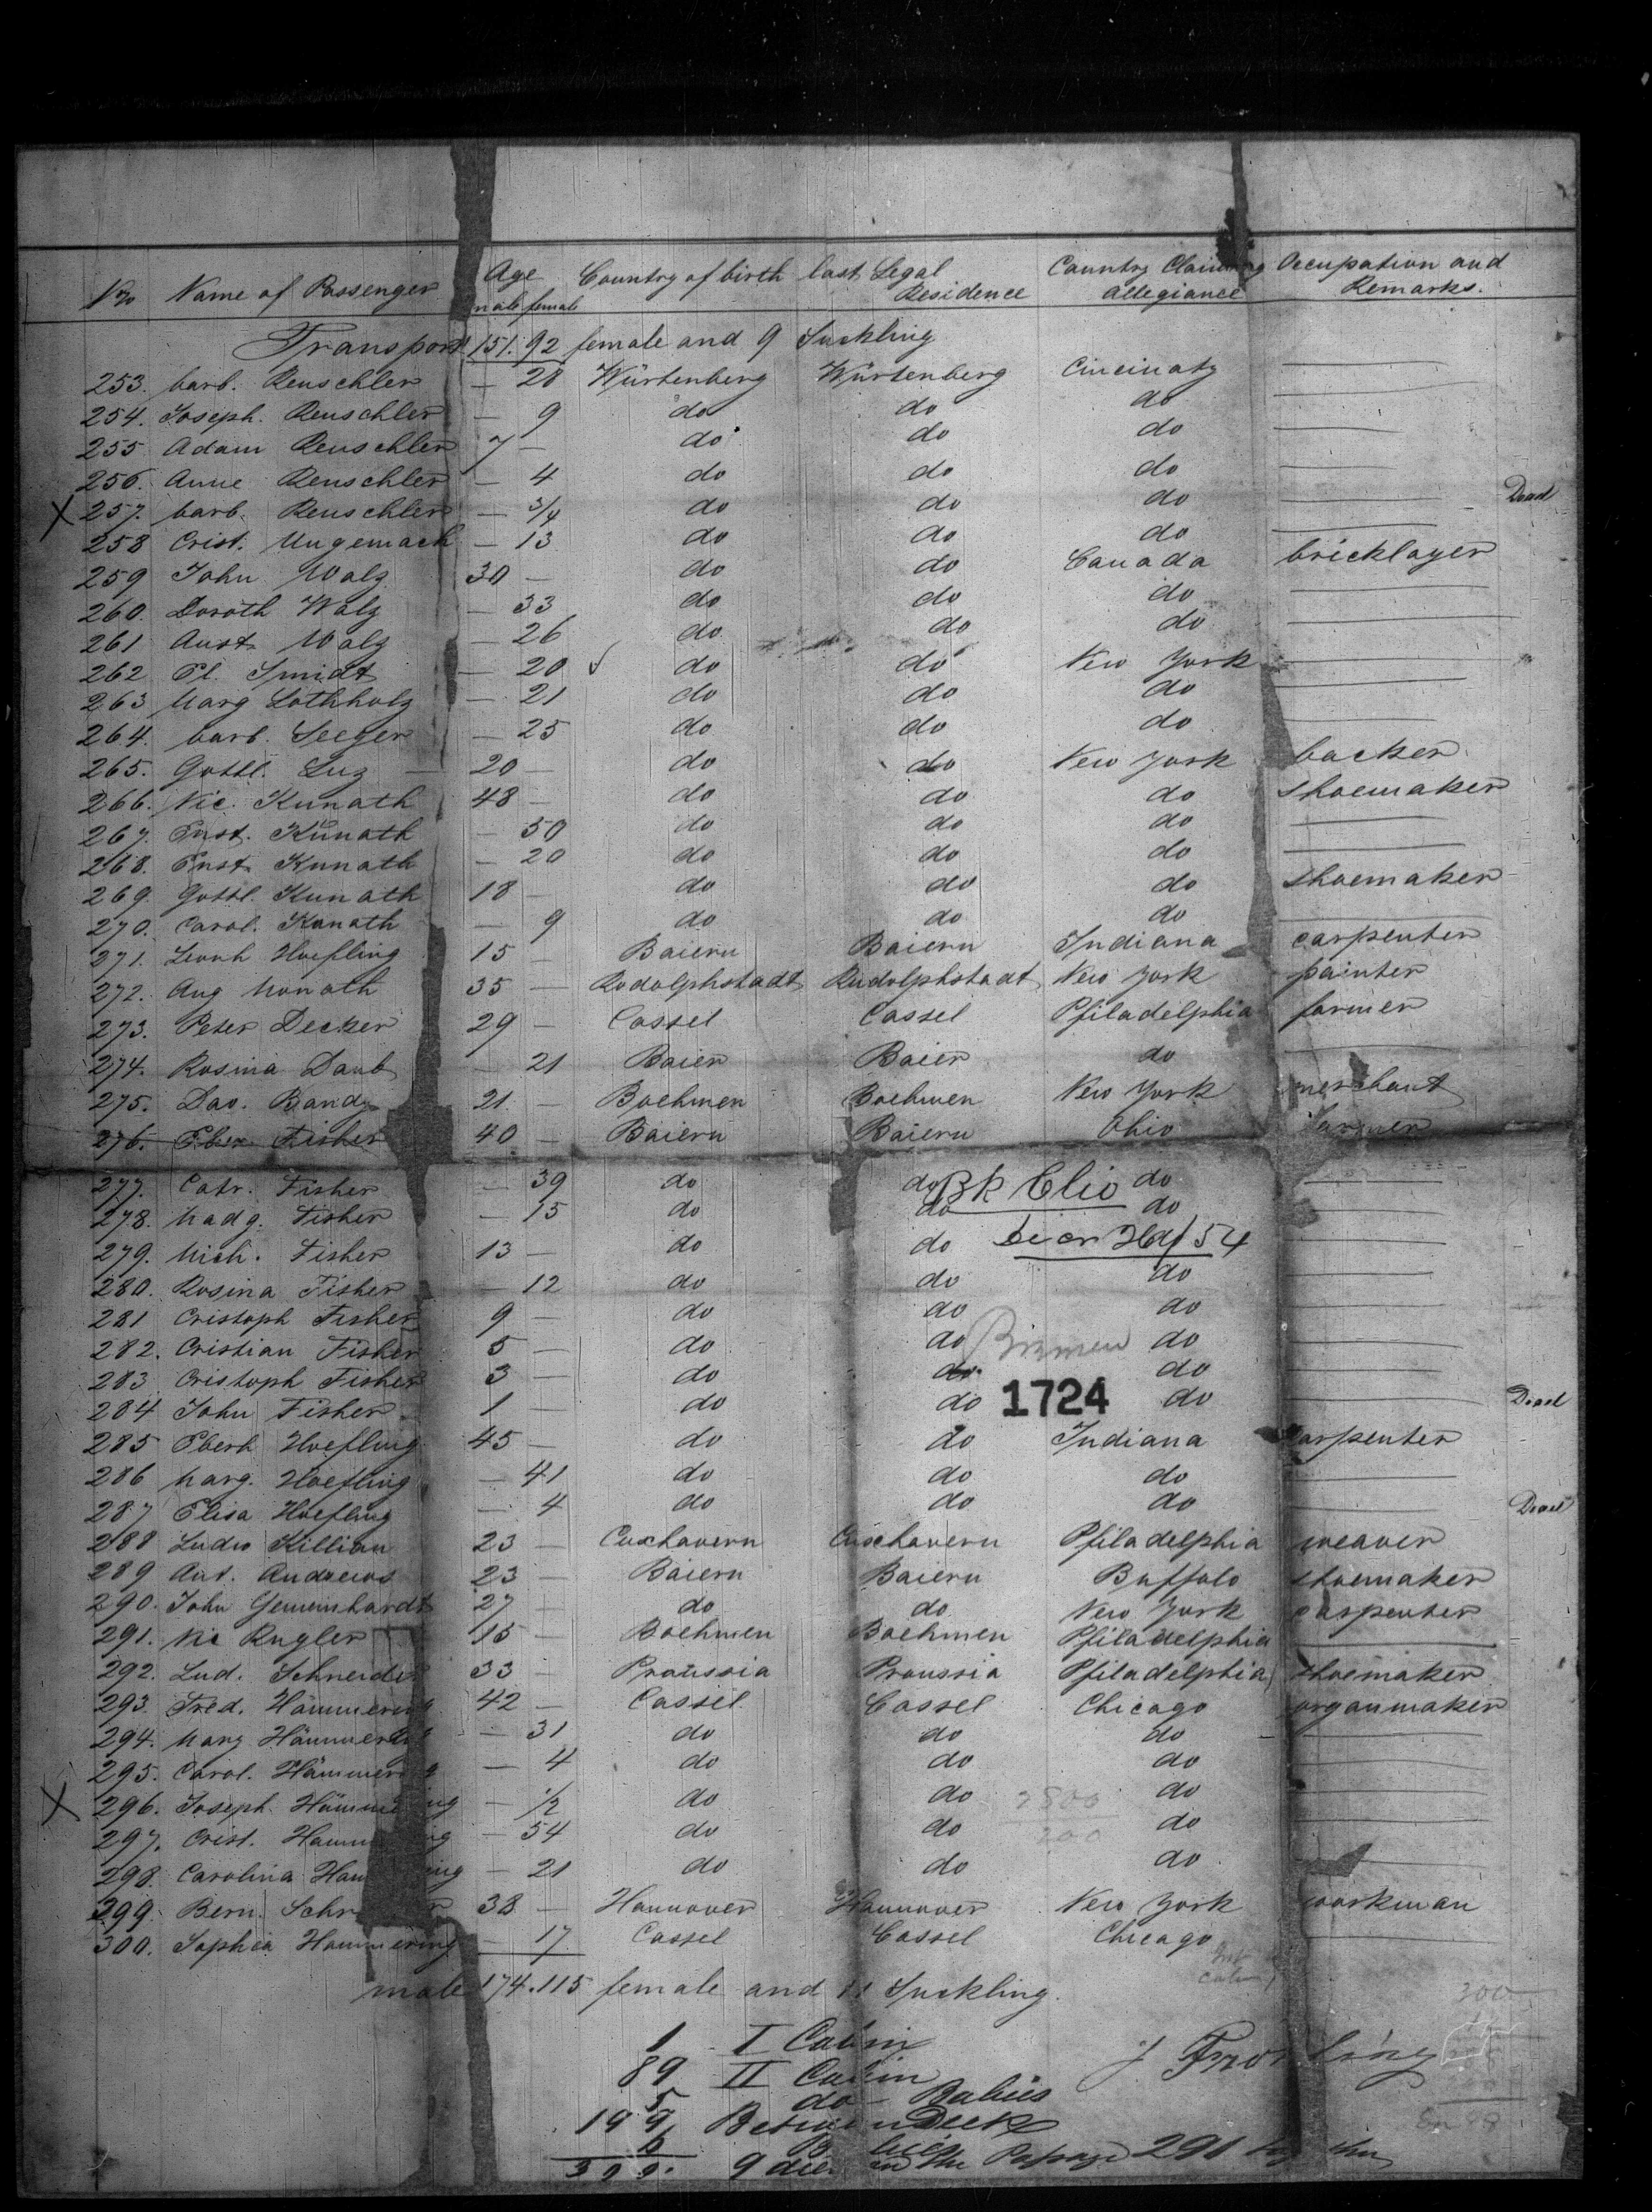 No Name of Passenger Age male female Country of birth last Legal Residence Country Claiming allegiance Occupation and Remarks.
Transport 151. 92 female and 9 Suckling
253. barb. Reuschler — 28 Würtenberg Würtenberg Cincinaty
254. Joseph. Reuschler — 9 do do do
255 Adam Reuschler 7 — do do do
256. Anne Reuschler — 4 do do do
X 257. barb. Reuschler — 3/4 do do do Dead
258 Crist. Ungemach — 13 do do do
259 John Walz 30 — do do Canada bricklayer
260. Doroth Walz — 33 do do do
261 Aust. Walz — 26 do do do
262 El. Smidt — 20 do do New York
263 Marg Lothholz — 21 do do do
264. barb. Seeger — 25 do do do
265. Gottl. Luz 20 — do do New York backer
266. Nic. Kunath 48 — do do do shoemaker
267. Enst. Kunath — 50 do do do
268. Enst. Kunath — 20 do do do
269. Gottl. Kunath 18 — do do do shoemaker
270. Carol. Kunath — 9 do do do
271. Leonh Hoefling 15 — Baiern Baiern Indiana carpenter
272. Aug Monath 35 — Rodolphstadt Rudolphstadt New York painter
273. Peter Decker 29 — Cassel Cassel Pfiladelphia farmer
274. Rosina Daub — 21 Baier Baier do
275. Dav. Bandy 21 — Boehmen Boehmen New York merchant
276. Eber Fisher 40 — Baiern Baiern Ohio farmer
277. Catr. Fisher — 39 do do do
Bk Clio
278. Madg. Fisher — 15 do do do
279. Mich. Fisher 13 — do do
54
280. Rosina Fisher — 12 do do do
281 Cristoph Fisher 9 — do do do
282. Cristian Fisher 5 — do do do
Bremen
283 Cristoph Fisher 3 — do do do
284 John Fisher 1 — do do do Dead
1724
285 Eberh Hoefling 45 — do do Indiana carpenter
286 Marg. Hoefling — 41 do do do
287 Elisa Hoefling — 4 do do do Dead
288 Ludw Killian 23 — Cuxhavern Cuxhavern Pfiladelphia weaver
289 Ant. Andrews 23 — Baiern Baiern Buffalo shoemaker
290. John Gemeinhardt 27 — do do New York carpenter
291. Nic Kugler 15 — Boehmen Boehmen Pfiladelphia
292. Lud. Schneider 33 — Proussia Proussia Pfiladelphia shoemaker
293. Fred. Hämmering 42 — Cassel Cassel Chicago organmaker
294. Marg Hämmering — 31 do do do
295. Carol. Hämmering — 4 do do do
X 296. Joseph. Hämmering — 1/2 do do do
297. Crist. Hammering — 54 do do do
298. Carolina Hammering — 21 do do do
299. Bern. 38 — Hannover Hannover New York workman
300. Sophia Hammering — 17 Cassel Cassel Chicago
male 174. 115 female and 11 Suckling.
1 I Cabin
89 II Cabin
5 do Babies
199 Between Deck
6
300. 9 died on the Passage 291